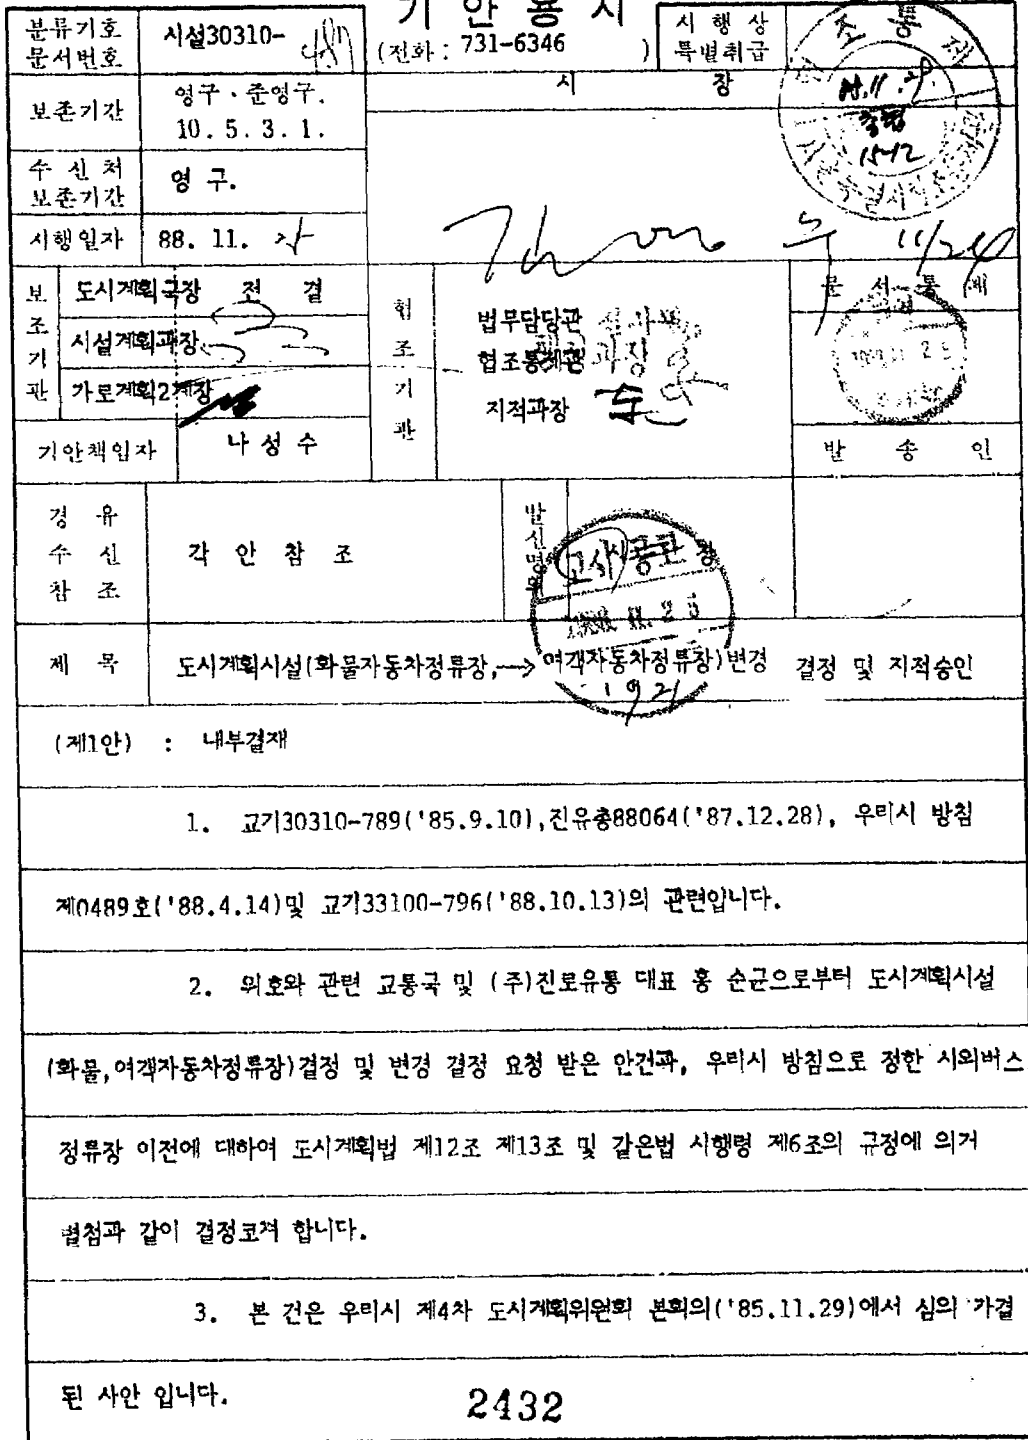 기 안 용 지
분류기호
문서번호
시설30310-
(전화 : 731-6346 )
시 행 상
특별취급
보존기간
영구 · 준영구.
10. 5. 3. 1.
시 장
수 신 처
보존기간
영 구.
시행일자
88. 11.
11/24
보
조
기
관
도시계획국장 전 결
시설계획과장
가로계획2계장
협
조
기
관
법무담당관
협조통제관
지적과장
문 서 통 제
기안책임자
나 성 수
발 송 인
경 유
수 신
참 조
각 안 참 조
발
신
명
의
제 목
도시계획시설(화물자동차정류장,→ 여객자동차정류장)변경 결정 및 지적승인
(제1안) : 내부결재
1. 교기30310-789('85.9.10),진유총88064('87.12.28), 우리시 방침
제0489호('88.4.14)및 교기33100-796('88.10.13)의 관련입니다.
2. 위호와 관련 교통국 및 (주)진로유통 대표 홍 순균으로부터 도시계획시설
(화물,여객자동차정류장)결정 및 변경 결정 요청 받은 안건과, 우리시 방침으로 정한 시외버스
정류장 이전에 대하여 도시계획법 제12조 제13조 및 같은법 시행령 제6조의 규정에 의거
별첨과 같이 결정코져 합니다.
3. 본 건은 우리시 제4차 도시계획위원회 본회의('85.11.29)에서 심의 가결
된 사안 입니다.
2432